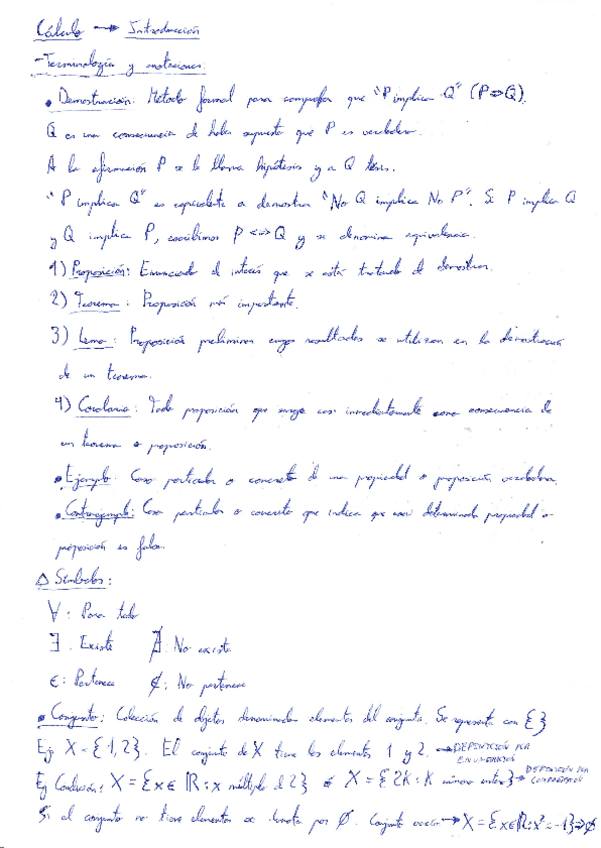 Cálculo → Introducción
- Terminología y notaciones:
• Demostración: Método formal para comprobar que "P implica Q" (P⇒Q).
Q es una consecuencia de haber supuesto que P es verdadera.
A la afirmación P se le llama hipótesis y a Q tesis.
"P implica Q" es equivalente a demostrar "No Q implica No P". Si P implica Q
y Q implica P, escribimos P <=> Q y se denomina equivalencia.
1) Proposición: Enunciado de interés que se está tratando de demostrar.
2) Teorema: Proposición más importante.
3) Lema: Proposición preliminar cuyos resultados se utilizan en la demostración
de un teorema.
4) Corolario: Toda proposición que surge casi inmediatamente como consecuencia de
un teorema o proposición.
• Ejemplo: Caso particular o concreto de una propiedad o proposición verdadera.
• Contraejemplo: Caso particular o concreto que indica que una determinada propiedad o
proposición es falsa.
△ Símbolos:
∀: Para todo
∃: Existe ∄: No existe
∈: Pertenece ∉: No pertenece
• Conjunto: Colección de objetos denominados elementos del conjunto. Se representa con { }
Ej X = {1,2}. El conjunto de X tiene los elementos 1 y 2. → DEFINICIÓN POR
ENUMERACIÓN
Ej Condición: X = {x ∈ ℝ : x múltiplo de 2} ó X = {2K : K número entero} → DEFINICIÓN POR
COMPRENSIÓN
Si el conjunto no tiene elementos se denota por Ø. Conjunto vacío → X = {x∈ℝ: x² = -1} ⇒ Ø